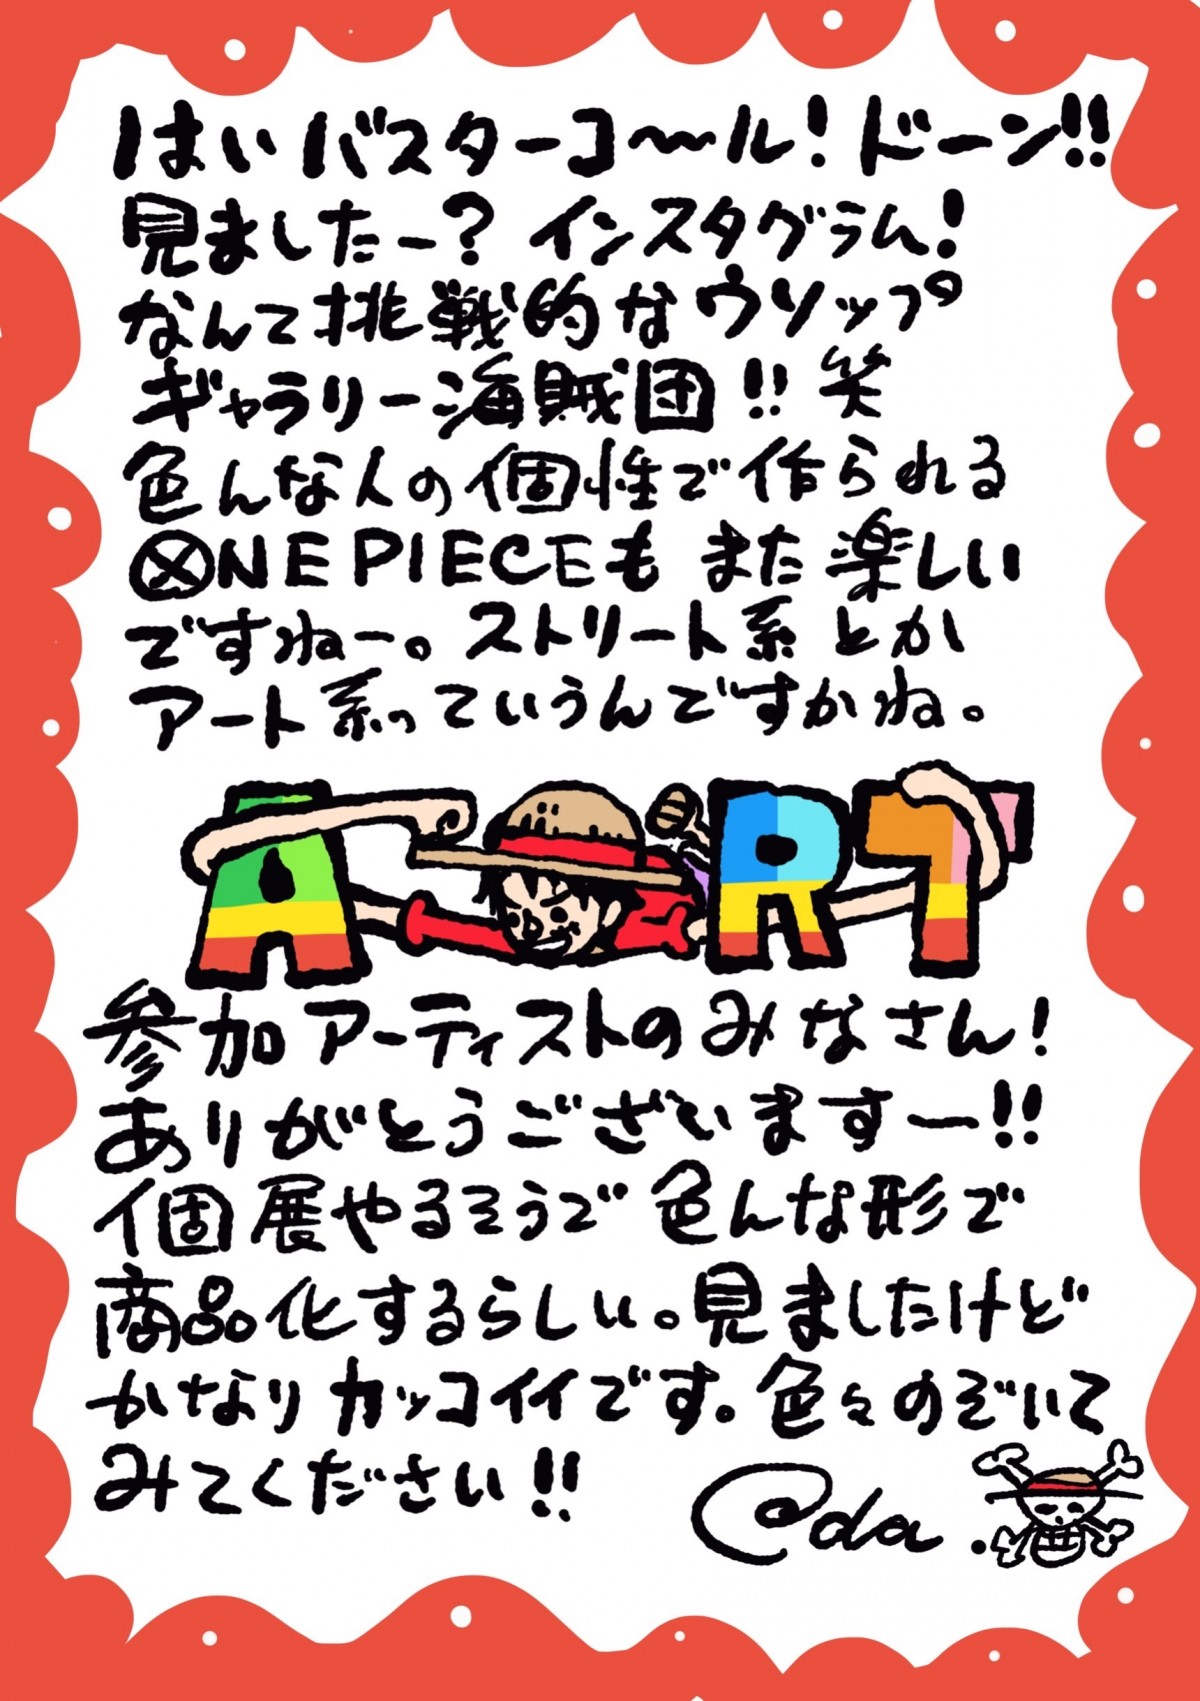 はい バスターコ〜ル！ドーン!!
見ましたー？インスタグラム！
なんて挑戦的なウソップ
ギャラリー海賊団!!笑
色んな人の個性で作られる
ONE PIECEもまた楽しい
ですねー。ストリート系とか
アート系っていうんですかね。
ART
参加アーティストのみなさん！
ありがとうございますー!!
個展やるそうで色んな形で
商品化するらしい。見ましたけど
かなりカッコイイです。色々のぞいて
みてください!!
Oda.